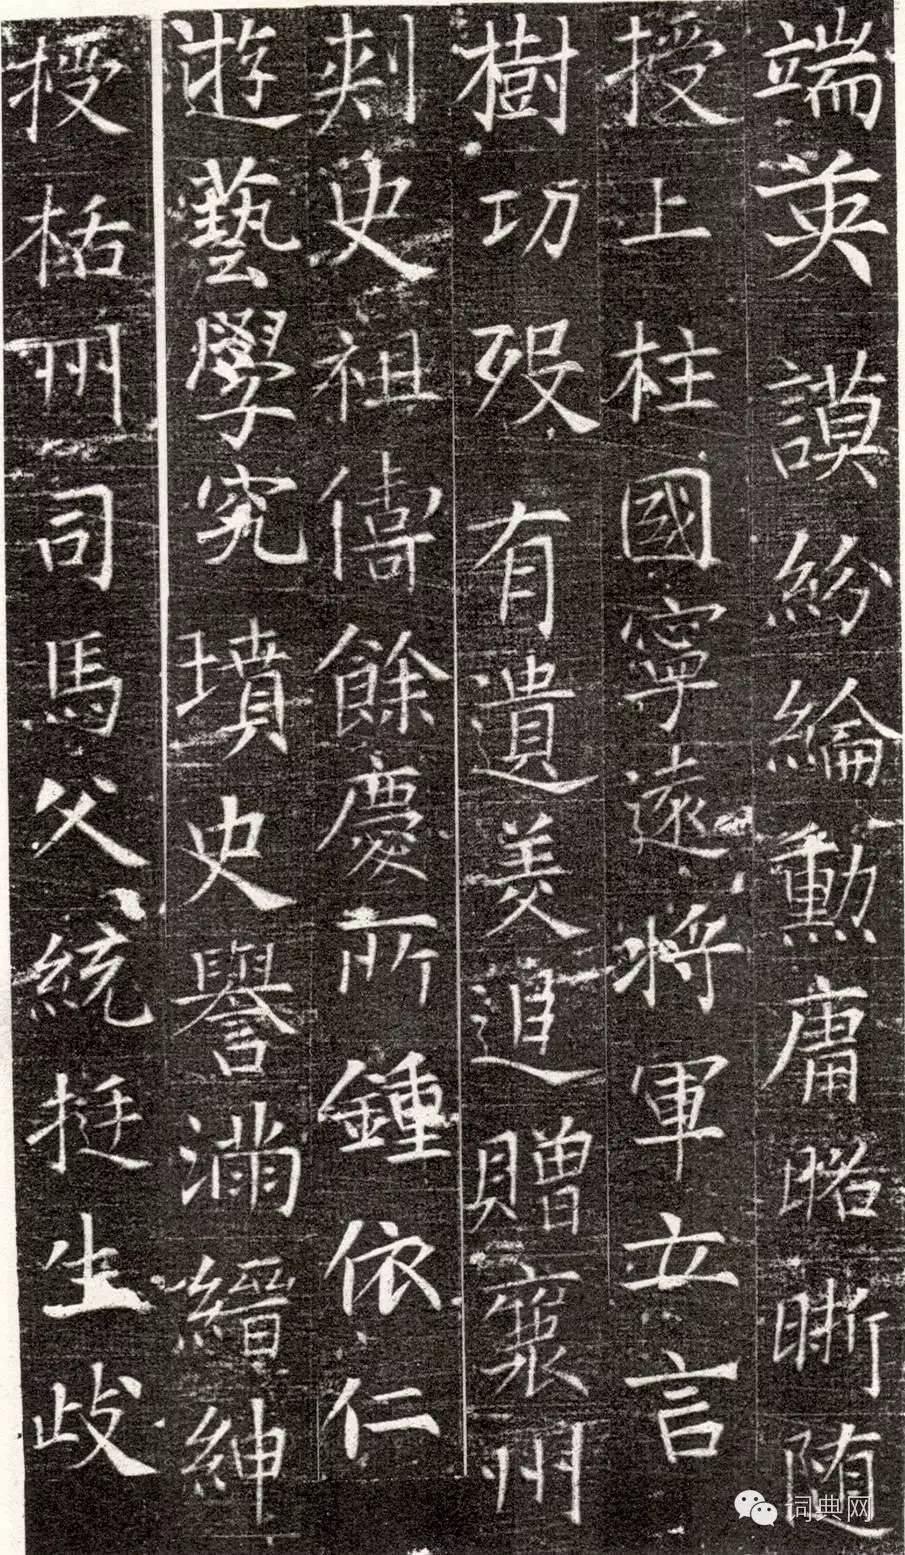 端英謨紛綸勳庸晤晣随
授上柱國寧遠將軍立言
樹功歿有遺美追贈襄州
刾史祖儔餘慶所鍾依仁
遊藝學究墳史譽滿縉紳
授栝州司馬父統挺生歧
词典网